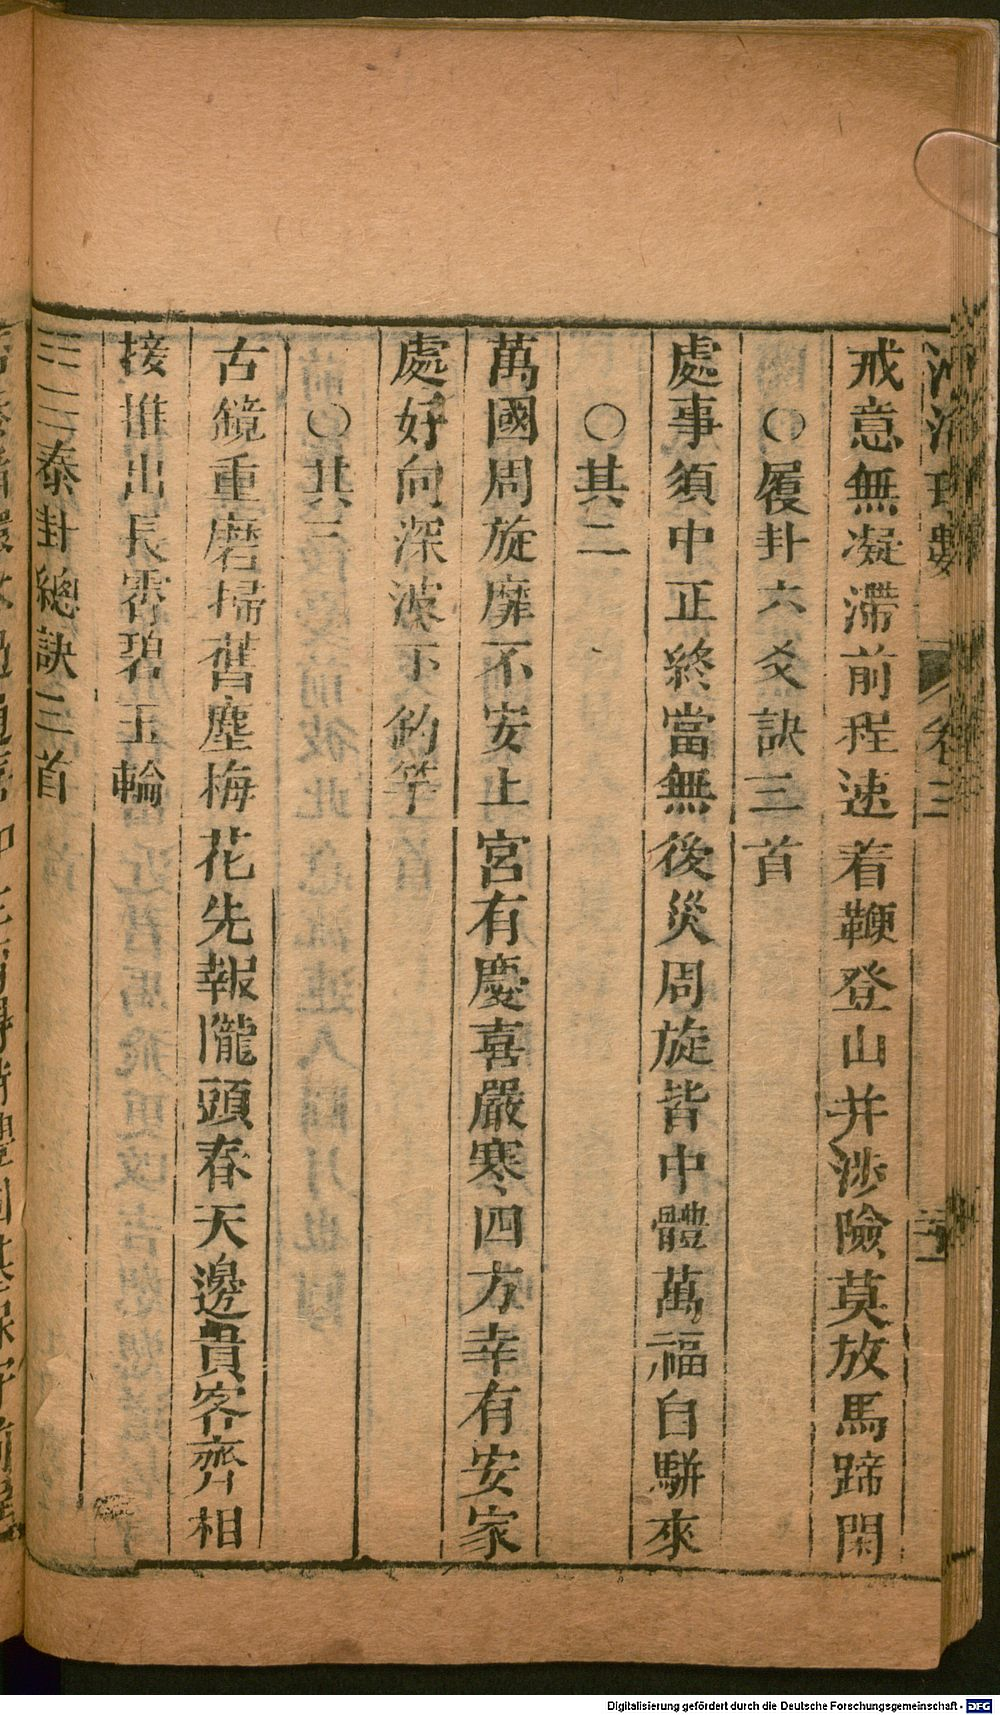 河洛理數 卷三
戒意無凝滯前程速着鞭登山并涉險莫放馬蹄閑
○履卦六爻訣三首
處事須中正終當無後災周旋皆中體萬福自駢來
○其二
萬國周旋靡不安上宮有慶喜嚴寒四方幸有安家
處好向深波下釣竿
○其三
古鏡重磨掃舊塵梅花先報隴頭春天邊貴客齊相
接推出長霄碧玉輪
泰卦總訣三首
Digitalisierung gefördert durch die Deutsche Forschungsgemeinschaft - DFG